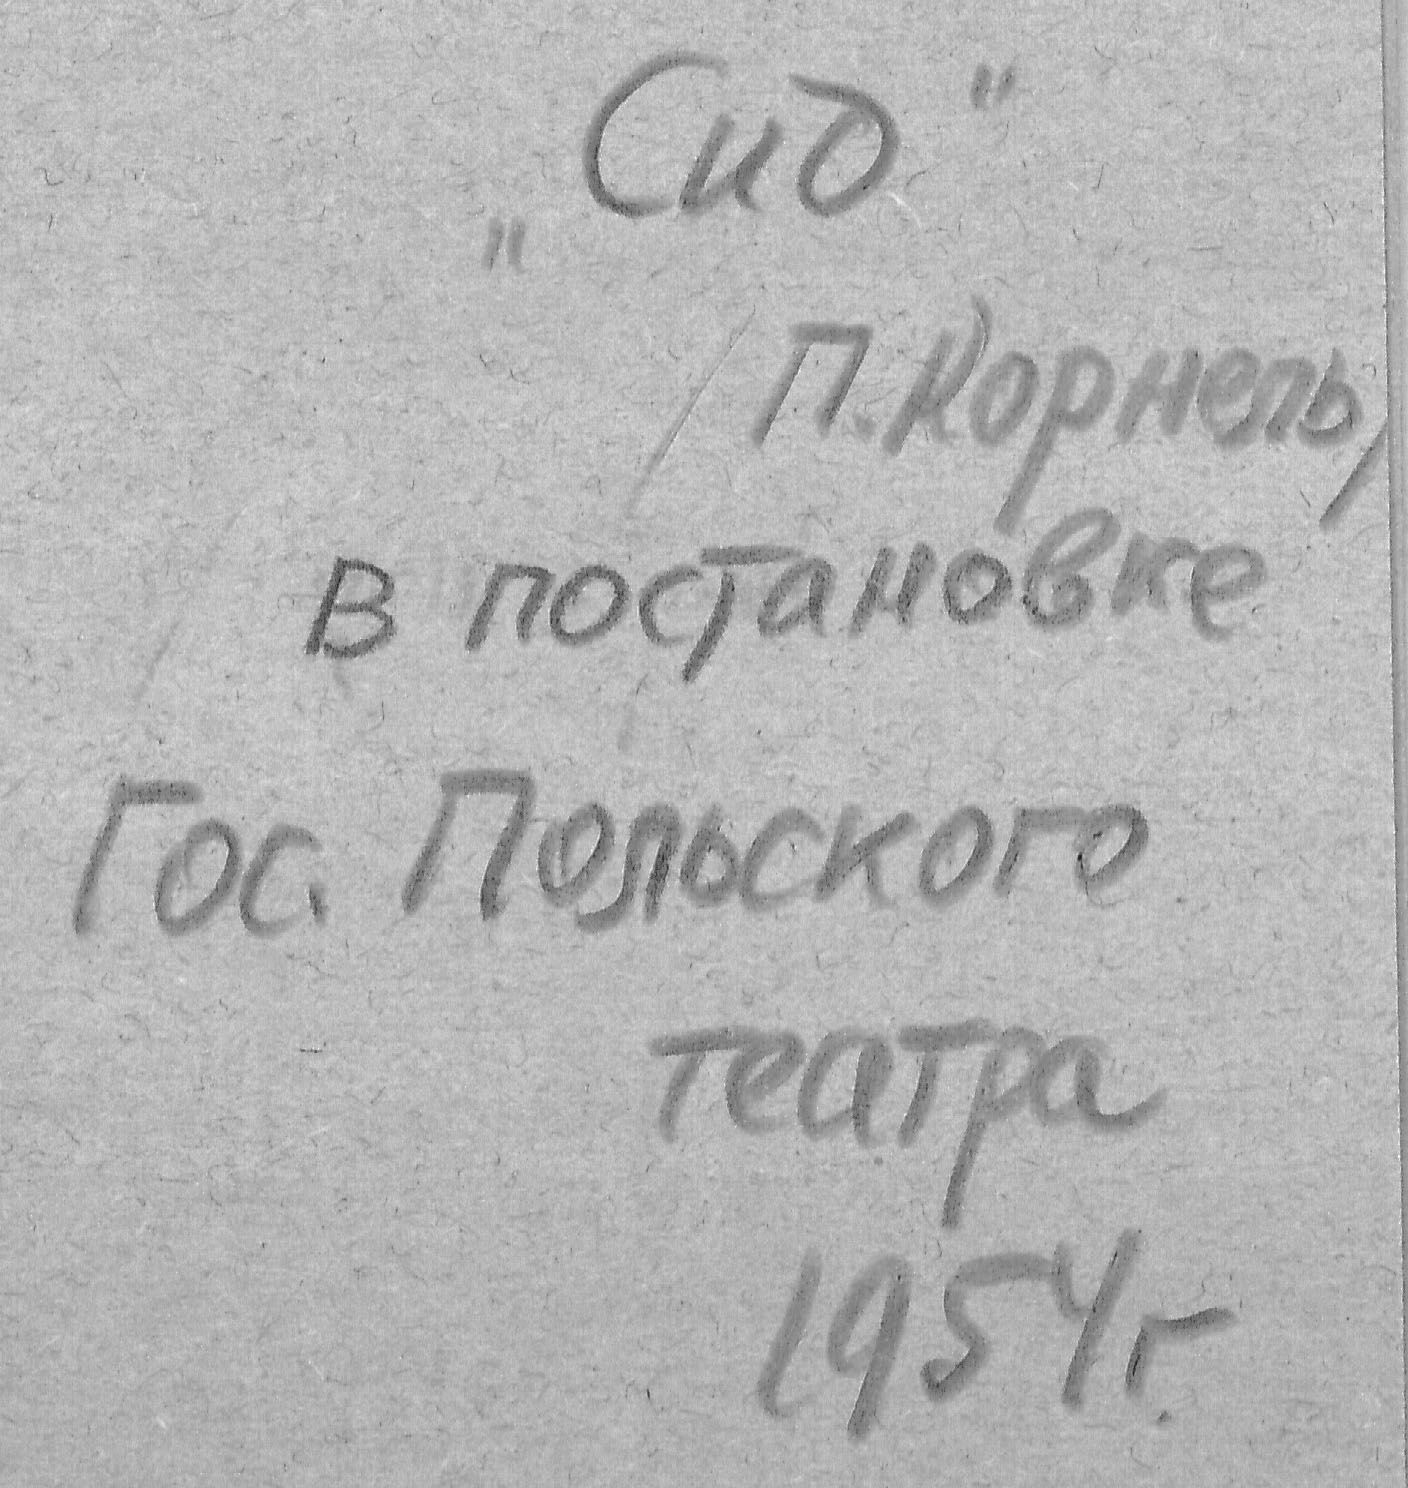 „Сид"
/П. Корнель/
В постановке
Гос. Польского
театра
1954г.